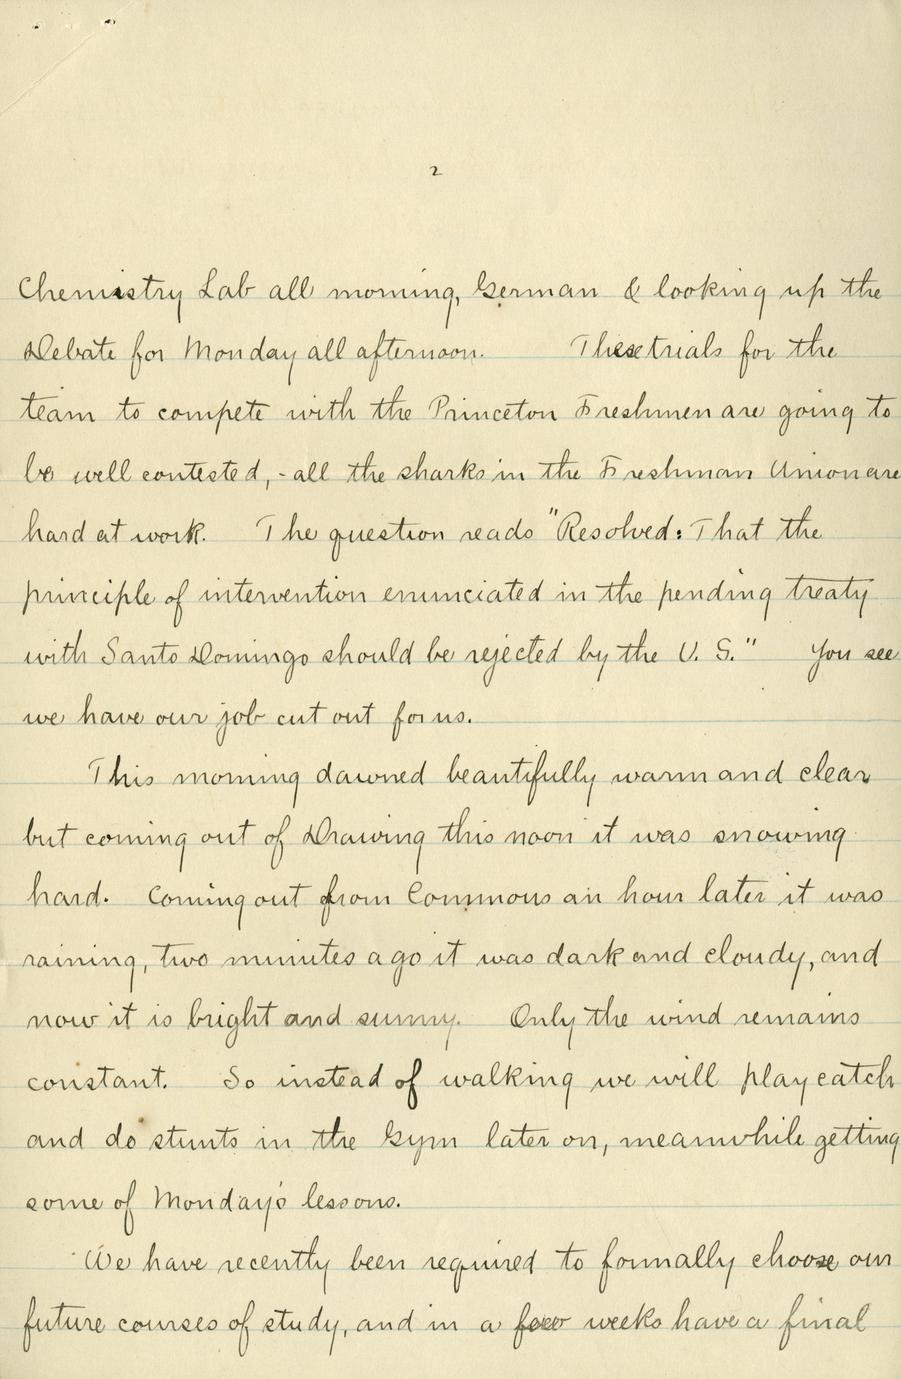 2
Chemistry Lab all morning, German & looking up the
Debate for Monday all afternoon. These trials for the
team to compete with the Princeton Freshmen are going to
be well contested, - all the sharks in the Freshman Union are
hard at work. The question reads "Resolved: That the
principle of intervention enunciated in the pending treaty
with Santo Domingo should be rejected by the U. S." You see
we have our job cut out for us.
This morning dawned beautifully warm and clear
but coming out of Drawing this noon it was snowing
hard. Coming out from Commons an hour later it was
raining, two minutes ago it was dark and cloudy, and
now it is bright and sunny. Only the wind remains
constant. So instead of walking we will play catch
and do stunts in the Gym later on, meanwhile getting
some of Monday's lessons.
We have recently been required to formally choose our
future courses of study, and in a few weeks have a final